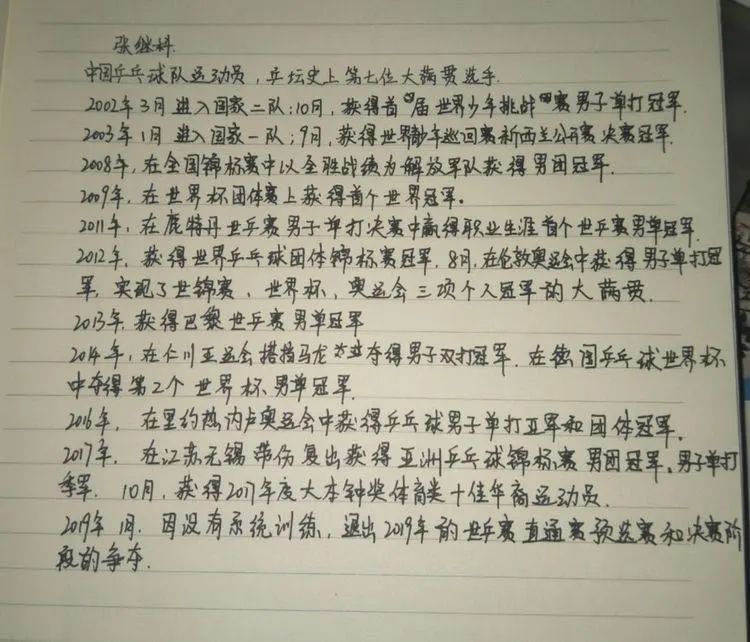 张继科.
中国乒乓球队运动员，乒坛史上第七位大满贯选手.
2002年3月进入国家二队；10月，获得首届世界少年挑战赛男子单打冠军.
2003年1月进入国家一队；9月，获得世界青少年巡回赛新西兰公开赛决赛冠军.
2008年，在全国锦标赛中以全胜战绩为解放军队获得男团冠军.
2009年，在世界杯团体赛上获得首个世界冠军。
2011年，在鹿特丹世乒赛男子单打决赛中赢得职业生涯首个世乒赛男单冠军.
2012年，获得世界乒乓球团体锦标赛冠军，8月，在伦敦奥运会中获得男子单打冠
军，实现了世锦赛、世界杯、奥运会三项个人冠军的大满贯.
2013年，获得巴黎世乒赛男单冠军
2014年，在仁川亚运会搭档马龙夺得男子双打冠军，在德国乒乓球世界杯
中夺得第2个世界杯男单冠军.
2016年，在里约热内卢奥运会中获得乒乓球男子单打亚军和团体冠军.
2017年，在江苏无锡带伤复出获得亚洲乒乓球锦标赛男团冠军、男子单打
季军.10月，获得2017年度大本钟奖体育类十佳华裔运动员.
2019年1月.因没有系统训练，退出2019年的世乒赛直通赛预选赛和决赛阶
段的争夺.